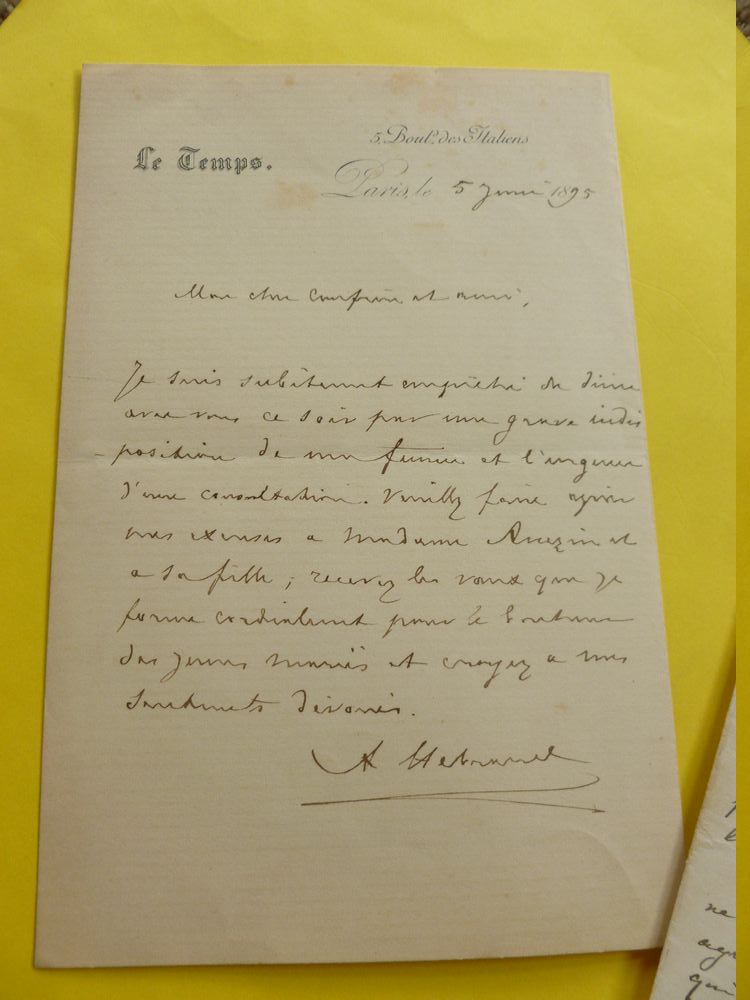 Le Temps.
5, Boul.d des Italiens
Paris, le 5 Juin 1895
Mon cher confrère et ami,
Je suis subitement empêché de diner
avec vous ce soir par une grave indis
position de ma femme et l'urgence
d'une consultation. Veuillez faire agréer
mes excuses a Madame et
a sa fille ; recevez les vœux que je
forme cordialement pour le bonheur
des jeunes mariés et croyez a mes
sentiments dévoués.
A Hébrard
ne
qui